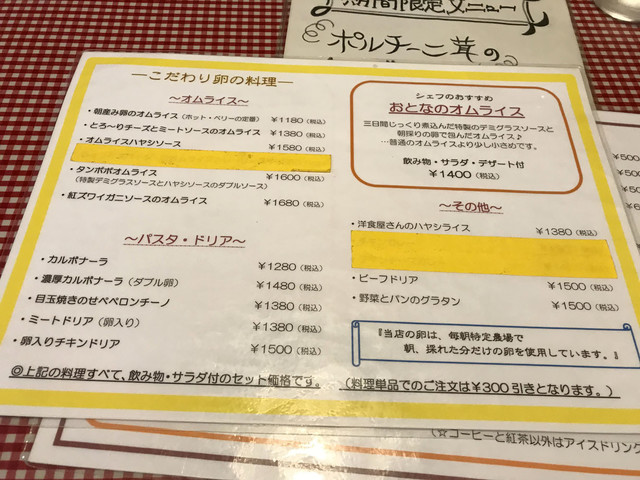 期間限定メニュー
ポルチーニ茸の
―こだわり卵の料理―
～オムライス～
・朝産み卵のオムライス（ホット・ベリーの定番） ￥1180（税込）
・とろ～りチーズとミートソースのオムライス ￥1380（税込）
・オムライスハヤシソース ￥1580（税込）
・タンポポオムライス ￥1600（税込）
（特製デミグラスソースとハヤシソースのダブルソース）
・紅ズワイガニソースのオムライス ￥1680（税込）
～パスタ・ドリア～
・カルボナーラ ￥1280（税込）
・濃厚カルボナーラ（ダブル卵） ￥1480（税込）
・目玉焼きのせペペロンチーノ ￥1380（税込）
・ミートドリア（卵入り） ￥1380（税込）
・卵入りチキンドリア ￥1500（税込）
シェフのおすすめ
おとなのオムライス
三日間じっくり煮込んだ特製のデミグラスソースと
朝採りの卵で包んだオムライス♪
…普通のオムライスより少し小さめです。
飲み物・サラダ・デザート付
￥1400（税込）
～その他～
・洋食屋さんのハヤシライス ￥1380（税込）
・ビーフドリア ￥1500（税込）
・野菜とパンのグラタン ￥1500（税込）
『当店の卵は、毎朝特定農場で
朝、採れた分だけの卵を使用しています。』
◎上記の料理すべて、飲み物・サラダ付のセット価格です。 （料理単品でのご注文は￥300引きとなります。）
（☆コーヒーと紅茶以外はアイスドリンク